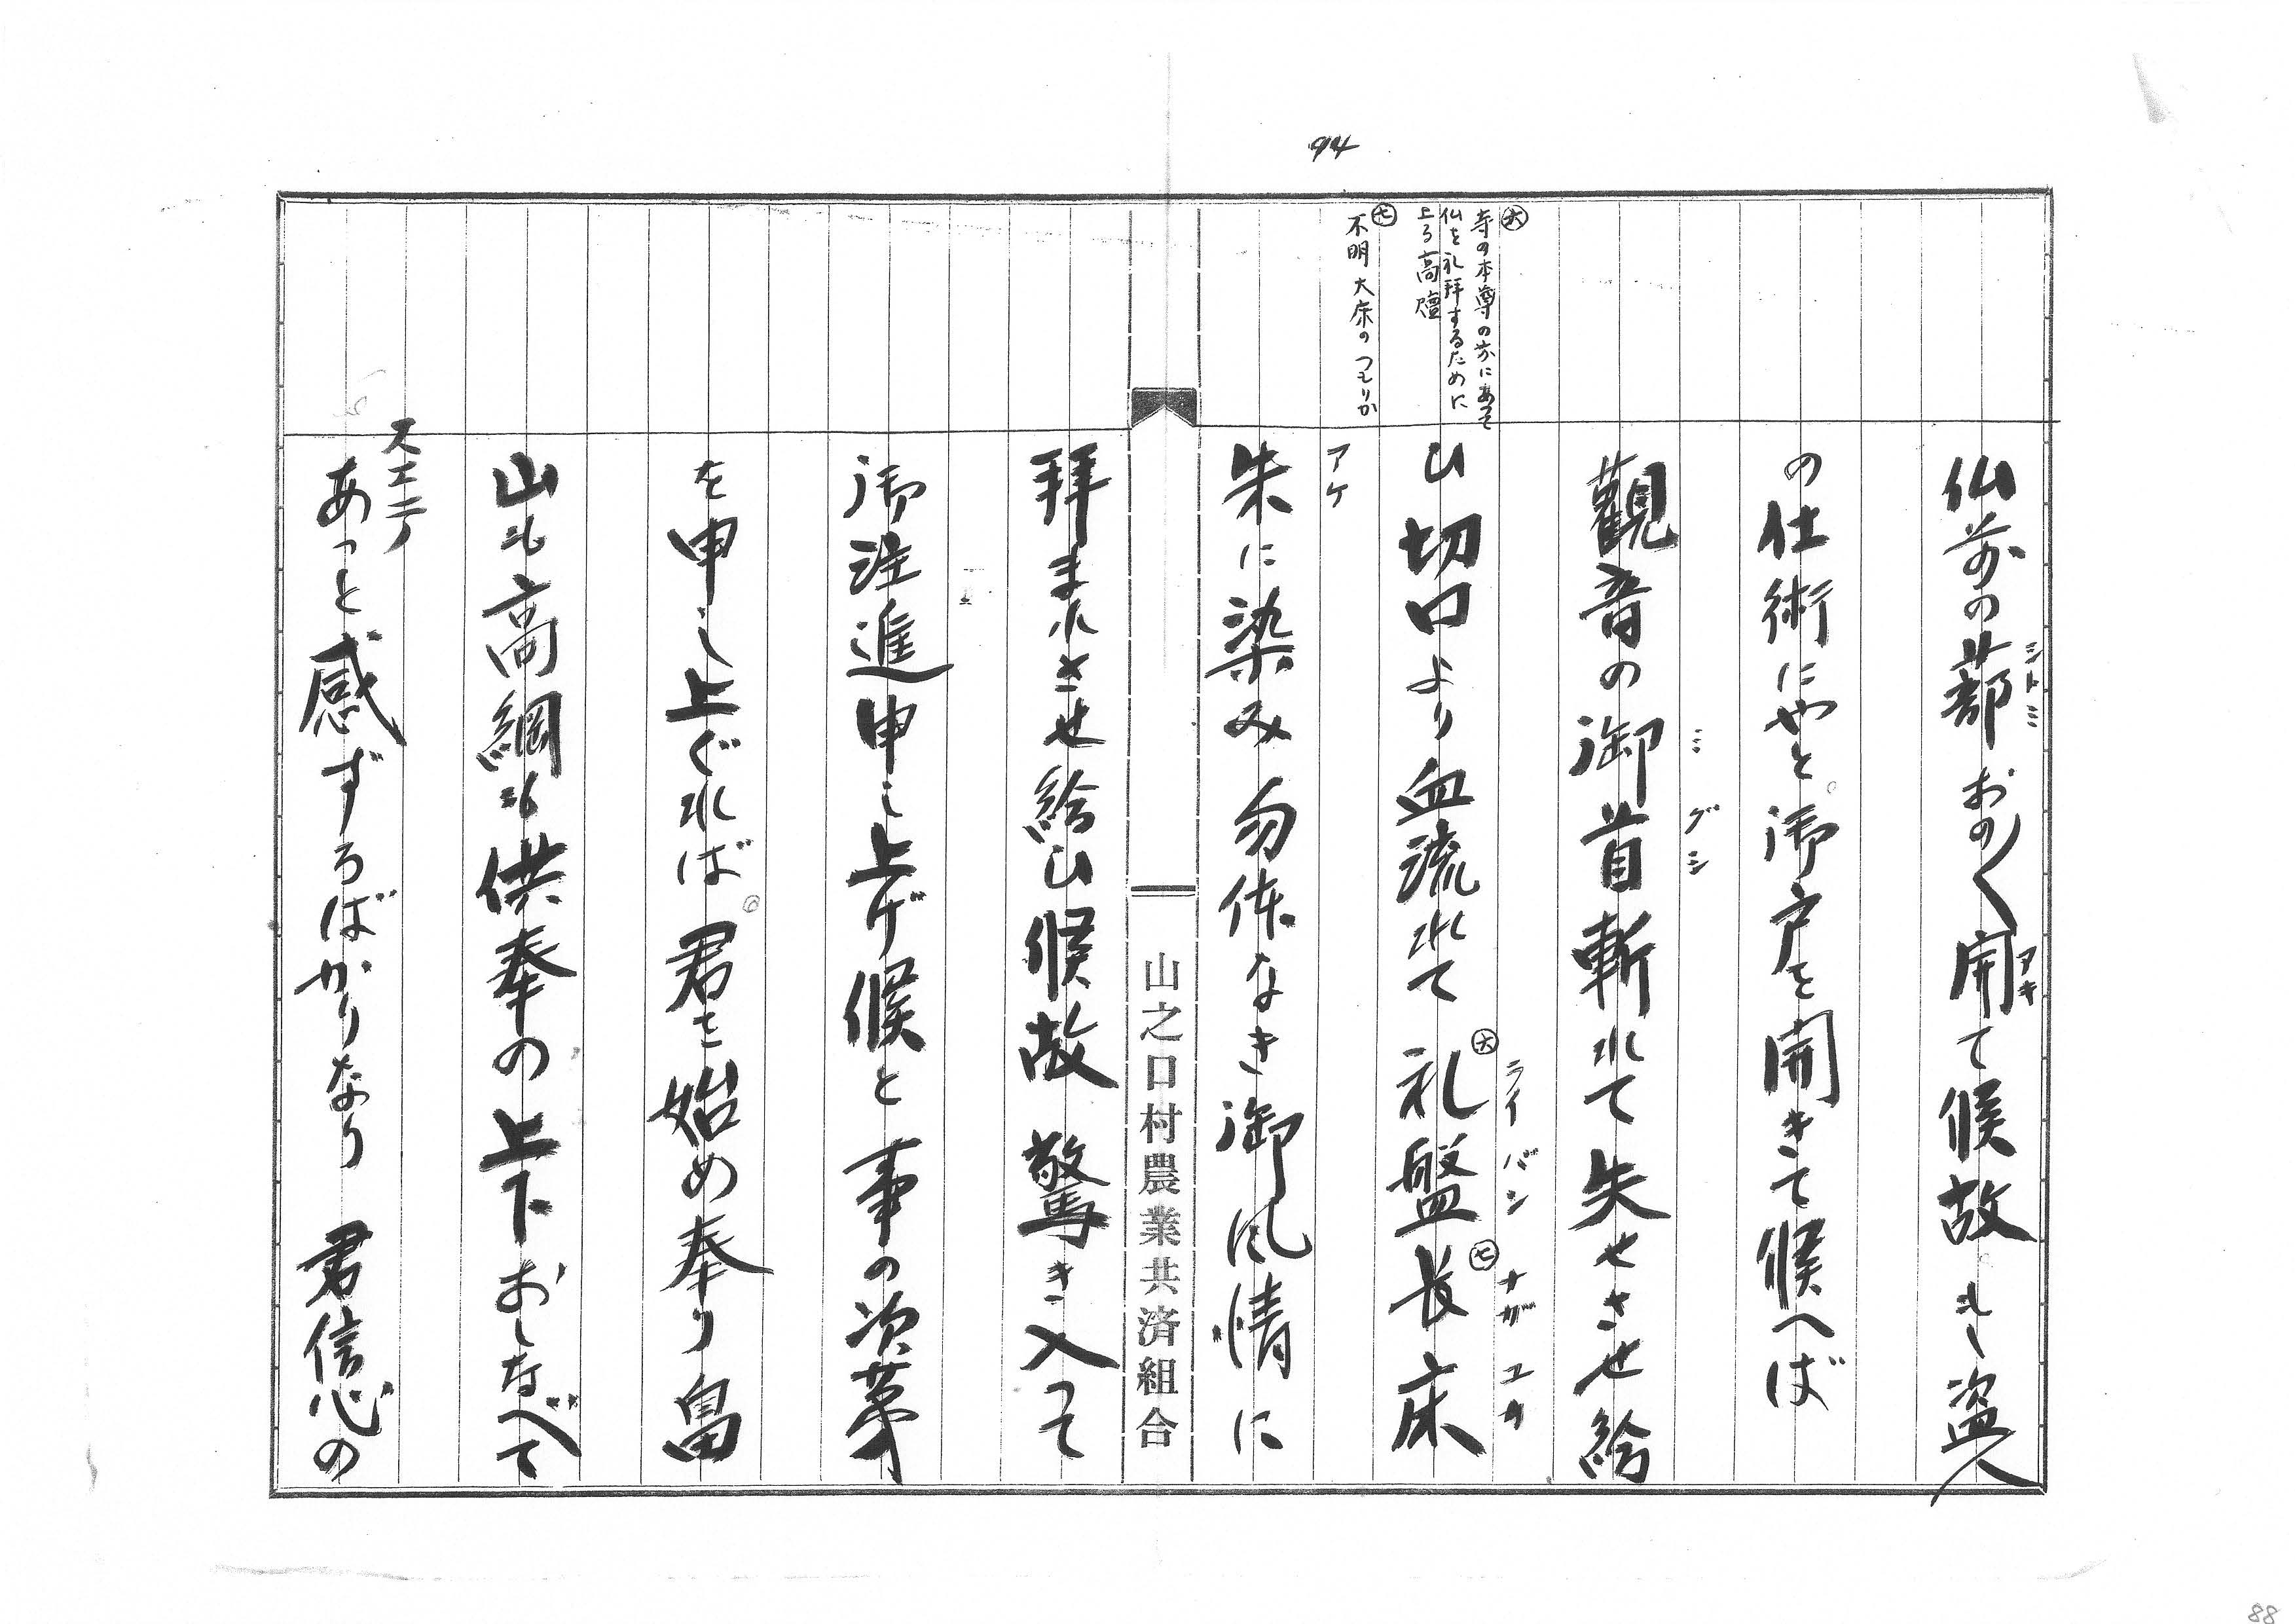 94
㊅
寺の本尊の前にあって
仏を礼拝するために
上る高壇
㊆
不明 大床のつもりか
仏前の蔀おの〱開て候故もし盗人
シトミ
アキ
の仕術にやと御戸を開きて候へば
観音の御首斬れて失せさせ給
ミグシ
ひ切口より血流れて㊅礼盤㊆長床
ライバン ナガユカ
朱に染み勿体なき御風情に
アケ
拝まれさせ給ひ候故驚き入って
御注進申し上げ候と事の次第
を申し上ぐれば。君を始め奉り畠
山も高綱も供奉の上下おしなべて
スエテ
あっと感ずるばかりなり 君信心の
山之口村農業共済組合
88